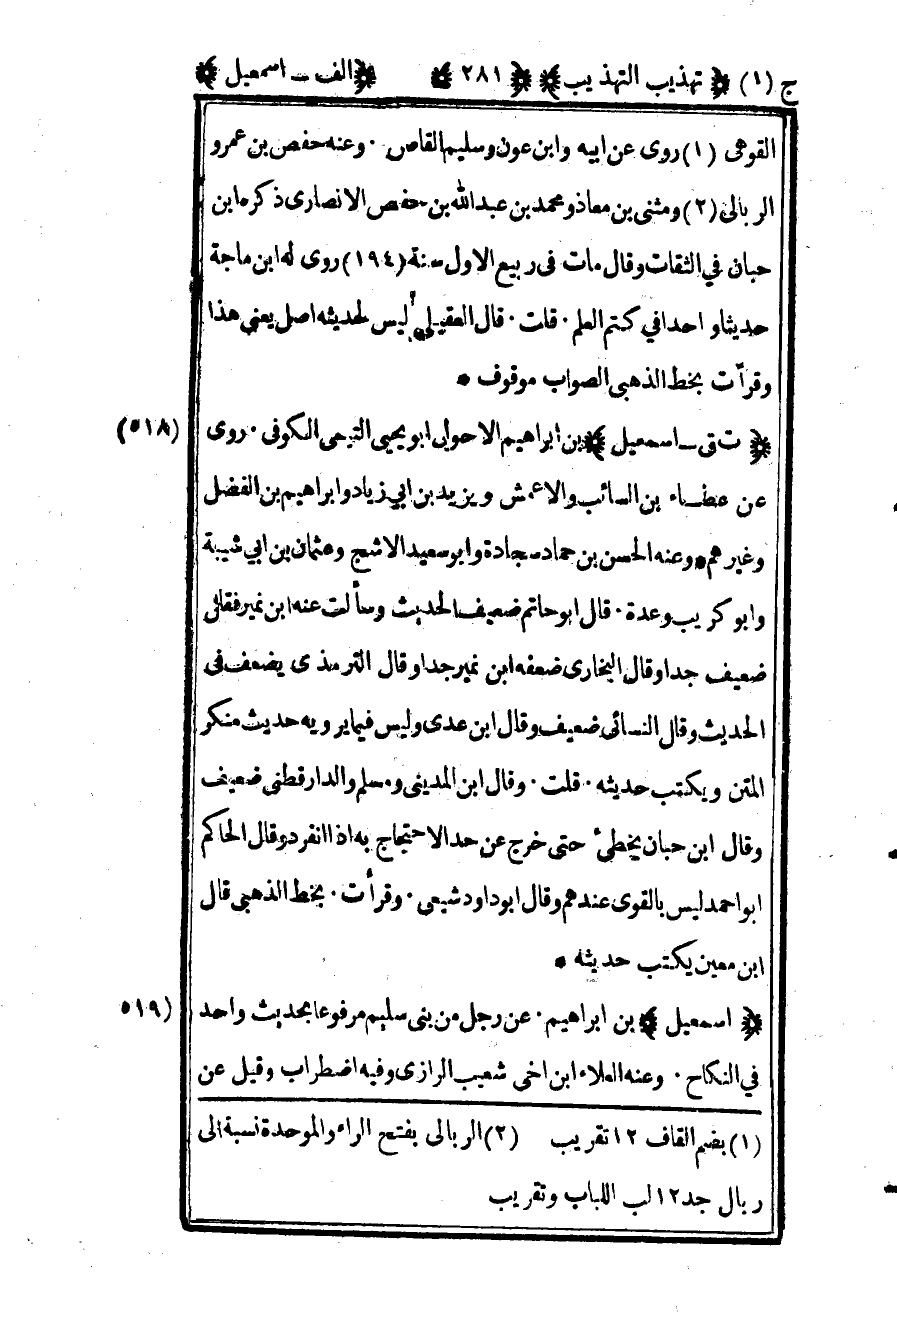 ج (١) ﴿ تهذيب التهذيب ﴾ ﴿ ٢٨١ ﴾ ﴿ الف ـ اسمعيل ﴾
القوهى (١) روى عن ابيه وابن عون وسليم القاص ٠ وعنه حفص بن عمرو
الربالى (٢) ومثنى بن معاذ ومحمد بن عبدالله بن حفص الانصارى ذكره ابن
حبان في الثقات وقال مات فى ربيع الاول سنة (١٩٤) روى له ابن ماجة
حديثا واحدا في كتم العلم ٠ قلت ٠ قال العقيلي ليس لحديثه اصل يعني هذا
وقرأت بخط الذهبى الصواب موقوف *
﴿ ت ق ـ اسمعيل ﴾ بن ابراهيم الاحول ابو يحيى التيمى الكوفى ٠ روى (٥١٨)
عن عطاء بن السائب والاعمش ويزيد بن ابي زياد وابراهيم بن الفضل
وغيرهم * وعنه الحسن بن حماد سجادة وابو سعيد الاشج وعثمان بن ابي شيبة
وابو كريب وعدة ٠ قال ابو حاتم ضعيف الحديث وسألت عنه ابن نمير فقال
ضعيف جدا وقال البخارى ضعفه ابن نمير جدا وقال الترمذى يضعف فى
الحديث وقال النسائى ضعيف وقال ابن عدى وليس فيما يرويه حديث منكر
المتن ويكتب حديثه ٠ قلت ٠ وقال ابن المدينى ومسلم والدارقطنى ضعيف
وقال ابن حبان يخطئ حتى خرج عن حد الاحتجاج به اذا انفرد وقال الحاكم
ابو احمد ليس بالقوى عندهم وقال ابو داود شيعى ٠ وقرأت ٠ بخط الذهبى قال
ابن معين يكتب حديثه *
﴿ اسمعيل ﴾ بن ابراهيم ٠ عن رجل من بنى سليم مرفوعا بحديث واحد (٥١٩)
في النكاح ٠ وعنه العلاء ابن اخى شعيب الرازى وفيه اضطراب وقيل عن
(١) بضم القاف ١٢ تقريب (٢) الربالى بفتح الراء والموحدة نسبة الى
ربال جد ١٢ لب اللباب وتقريب